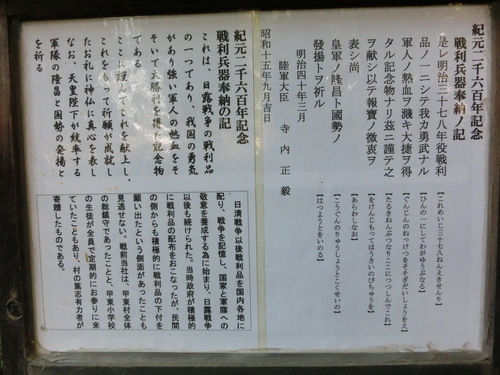 紀元二千六百年記念
戦利兵器奉納ノ記
是レ明治三十七八年役戦利
品ノ一ニシテ我カ勇武ナル
軍人ノ熱血ヲ濺キ大捷ヲ得
タル記念物ナリ茲ニ謹テ之
ヲ献シ以テ報賽ノ微衷ヲ
表シ尚
皇軍ノ隆昌ト國勢ノ
發揚トヲ祈ル
明治四十年三月
陸軍大臣 寺内正毅
昭和十五年九月吉日
【これめいじ三十七八ねんえきせんり】
【ひんの一にしてわがゆうぶなる】
【ぐんじんのねっけつをそそぎだいしょうをえ】
【たるきねんぶつなりここにつつしんでこれ】
【をけんじもってほうさいのびちゅうを】
【あらわしなお】
【こうぐんのりゅうしょうとこくせいの】
【はつようとをいのる】
紀元二千六百年記念
戦利兵器奉納の記
これは、日露戦争の戦利品
の一つであり、我国の勇気
があり強い軍人の熱血をそ
そいで大勝利を得た記念物
である。
ここに謹んでこれを献上し、
これをもって祈願が成就し
たお礼に神仏に真心を表し
なお、天皇陛下が統率する
軍隊の隆昌と国勢の発揚と
を祈る
日清戦争以後戦利品を国内各地に
配り、戦争を記憶し、国家と軍隊への
敬意を養成する為に始まり、日露戦争
以後も続けられた。当時政府が積極的
に戦利品の配布をおこなったが、民間
の側からも積極的に戦利品の下付を
願い出たという側面があったことも
見逃せない。戦前当社は、甲東村全体
の総鎮守であったことと、甲東小学校
の生徒が全員で定期的にお参りに来
ていたこともあり、村の篤志有力者が
寄贈したものである。